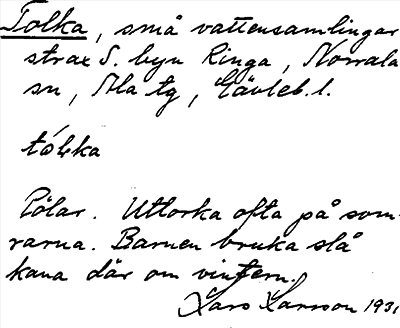 Tolka, små vattensamlingar
strax S. byn Ringa, Norrala
sn, Ala tg, Gävleb. l.
tól̵ka
Pölar. Uttorka ofta på som-
rarna. Barnen bruka slå
kana där om vintern.
Lars Larsson 1931